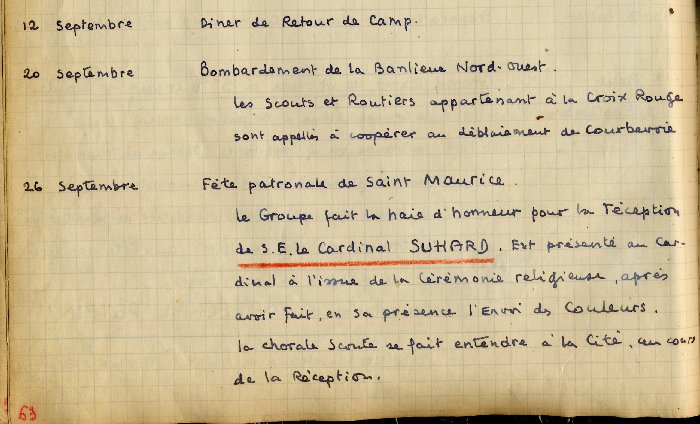 12 Septembre Diner de Retour de Camp.
20 Septembre Bombardement de la Banlieue Nord-Ouest.
Les Scouts et Routiers appartenant à la Croix Rouge
sont appellés à coopérer au déblaiement de Courbevoie
26 Septembre Fête patronale de Saint Maurice.
Le Groupe fait la haie d'honneur pour la réception
de S.E. le Cardinal SUHARD. Est présenté au Car-
dinal à l'issue de la Cérémonie religieuse, après
avoir fait, en sa présence l'Envoi des Couleurs.
La chorale Scoute se fait entendre à la Cité, au cours
de la Réception.
63